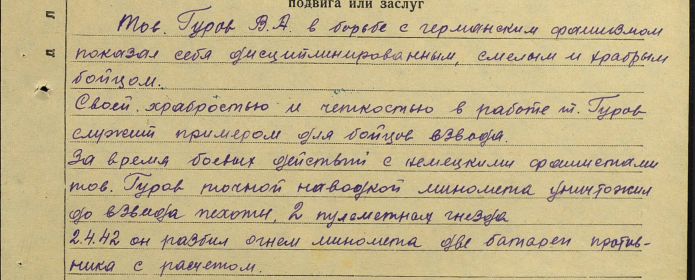 подвига или заслуг
Тов. Гуров В.А. в борьбе с германским фашизмом
показал себя дисциплинированным, смелым и храбрым
бойцом.
Своей храбростью и чёткостью в работе т. Гуров
служит примером для бойцов взвода.
За время боевых действий с немецкими фашистами
тов. Гуров точной наводкой миномета уничтожил
до взвода пехоты, 2 пулеметных гнезда
2.4.42 он разбил огнем миномета две батареи против-
ника с расчетом.